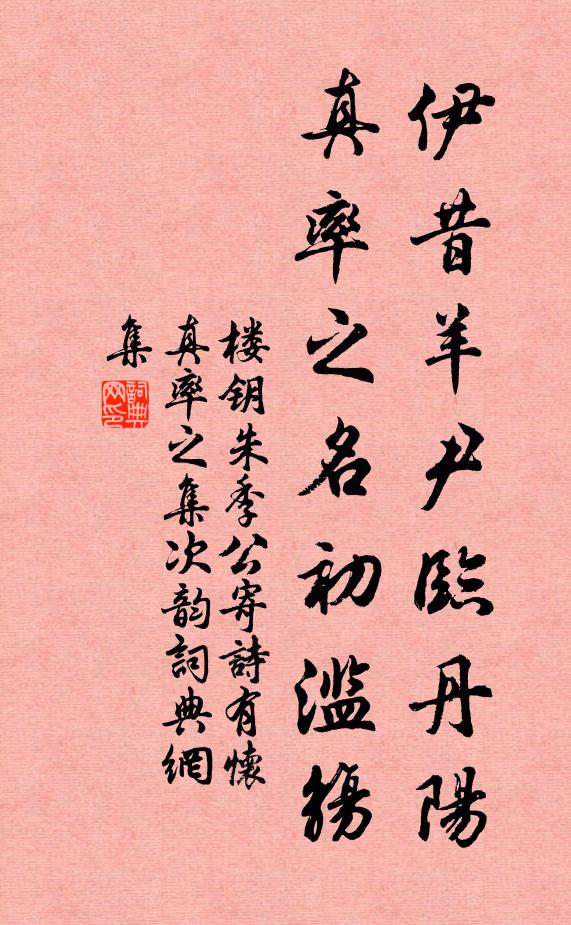 伊昔羊尹臨丹陽
真率之名初滥觴
楼钥朱季公寄詩有懷
真率之集次韵詞典網
集
詞典
网印